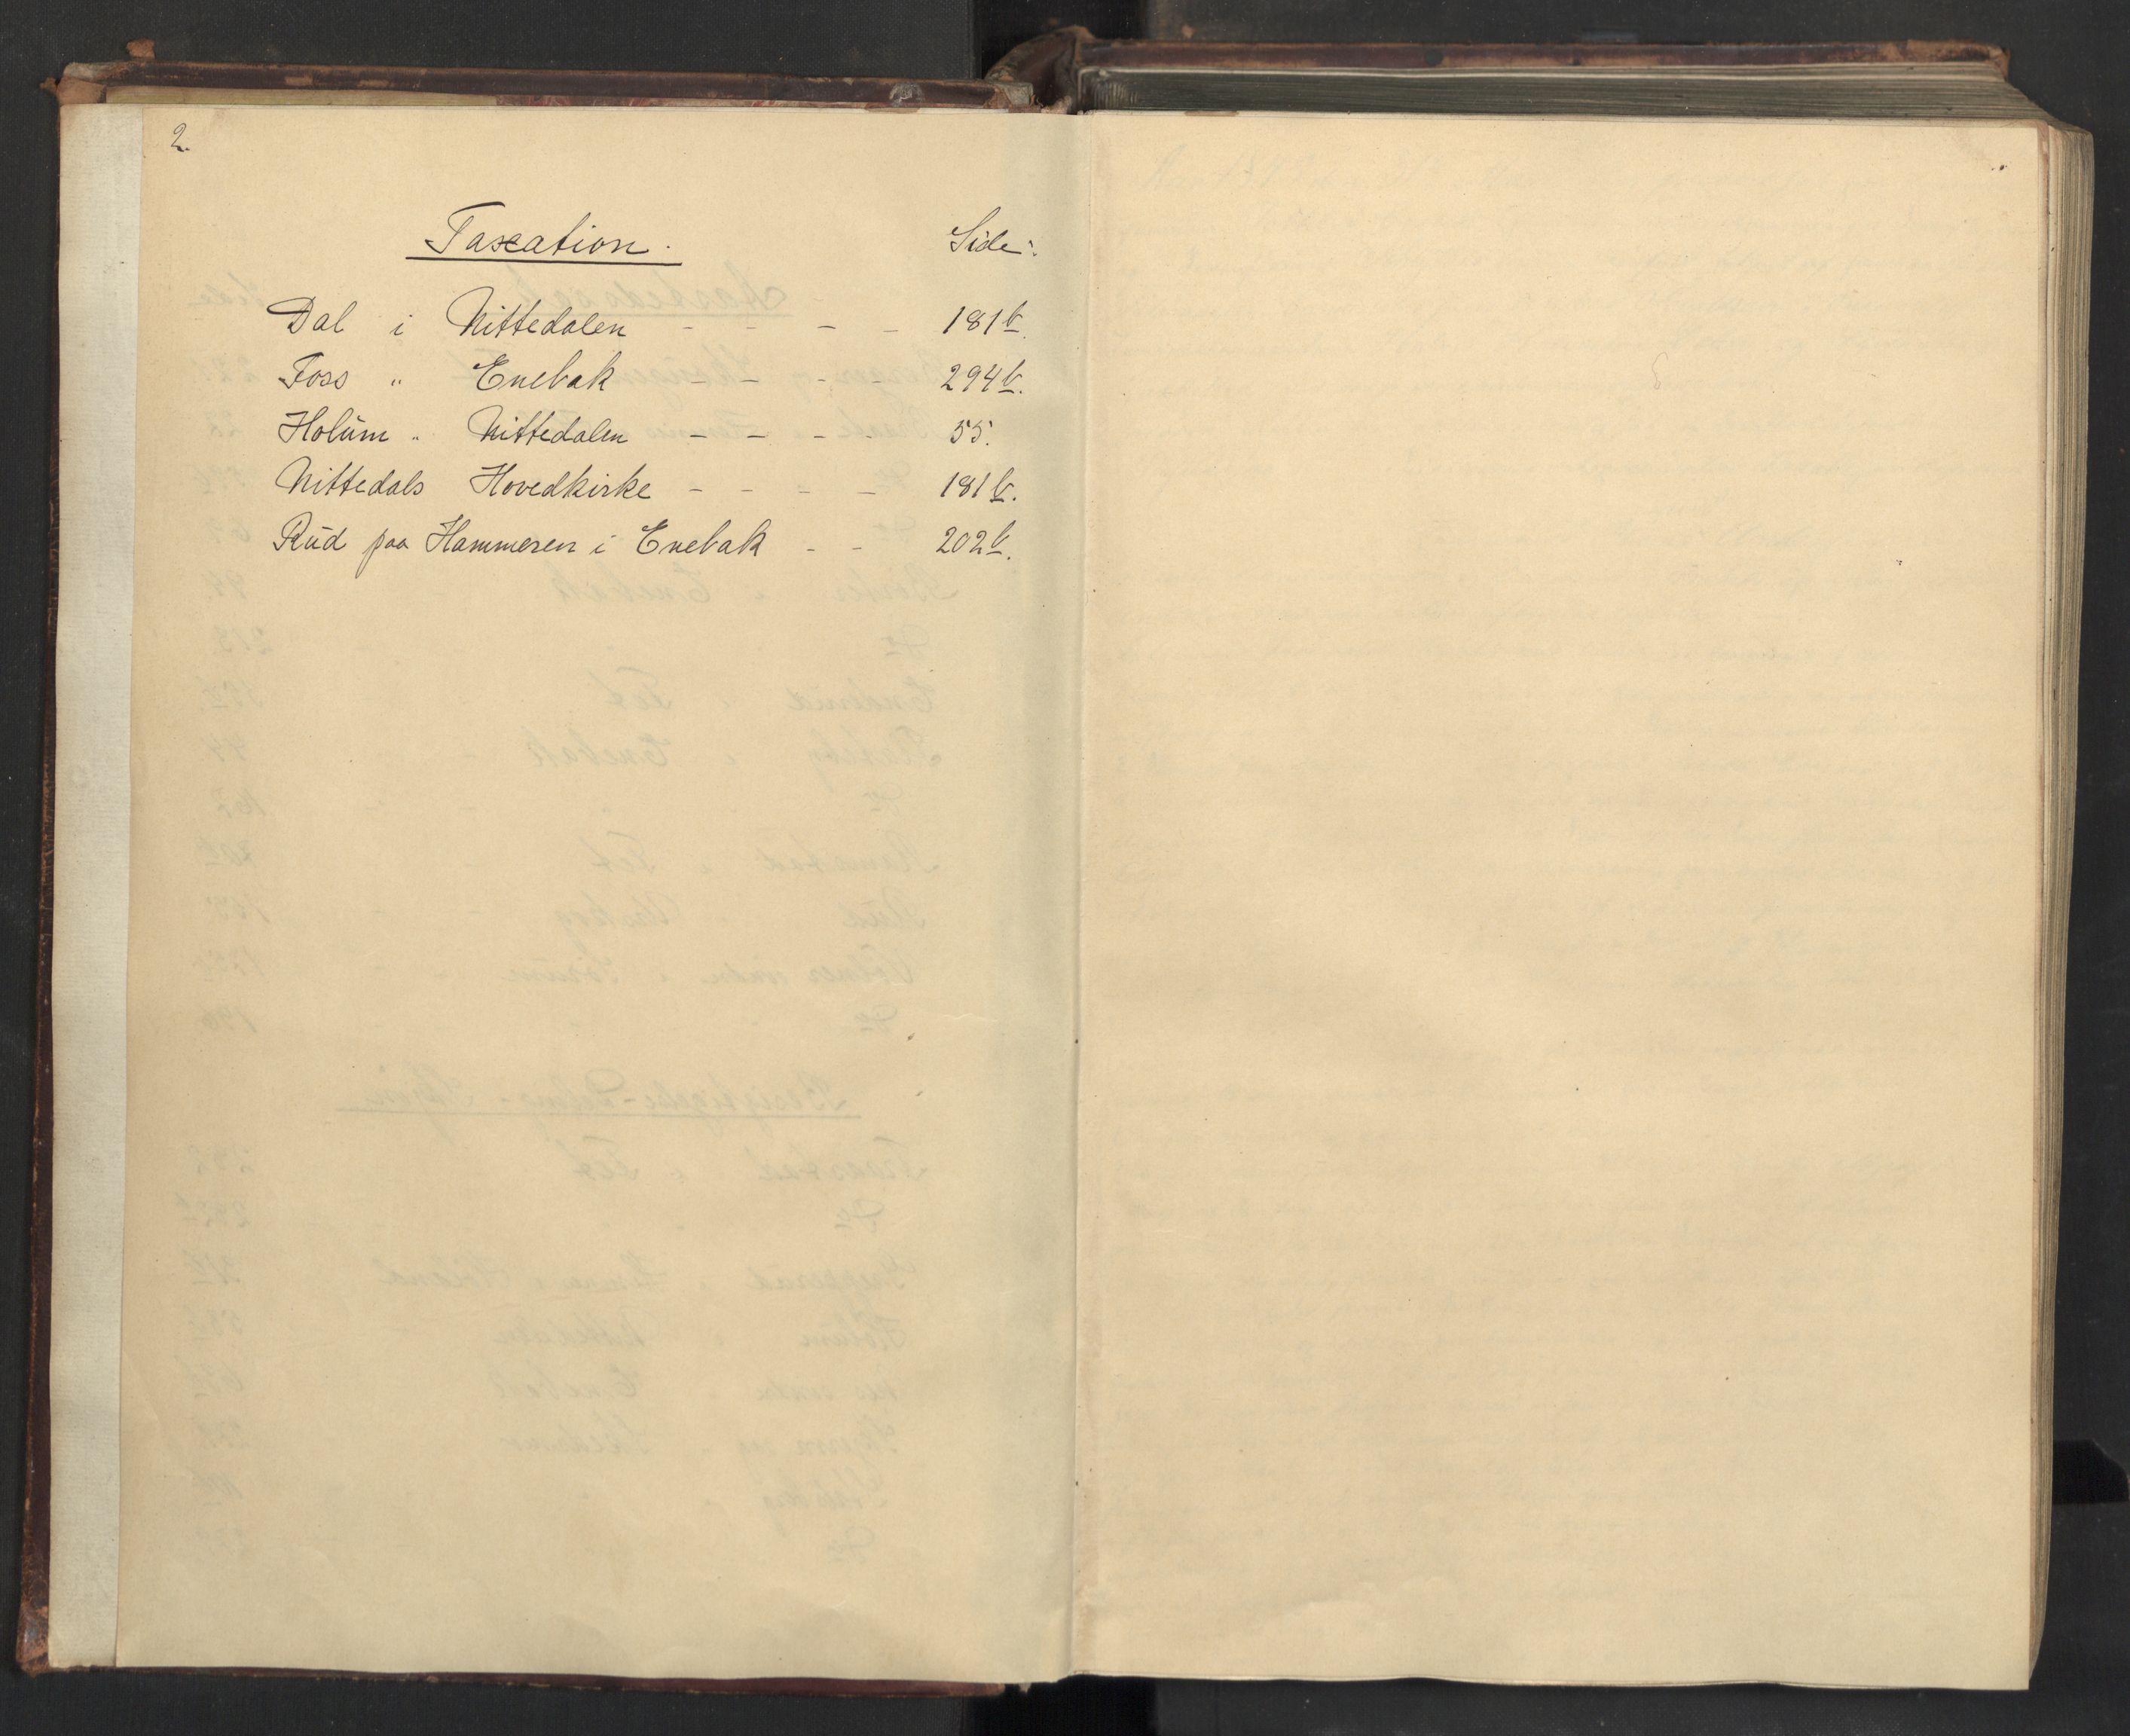 2.
Taxation. Side:
Dal i Nittedalen - - - - 181b.
Foss " Enebak - - - - 294b.
Holŭm " Nittedalen - - - - 55.
Nittedals Hovedkirke - - - - 181b.
Rŭd paa Hammeren i Enebak - - 202b.